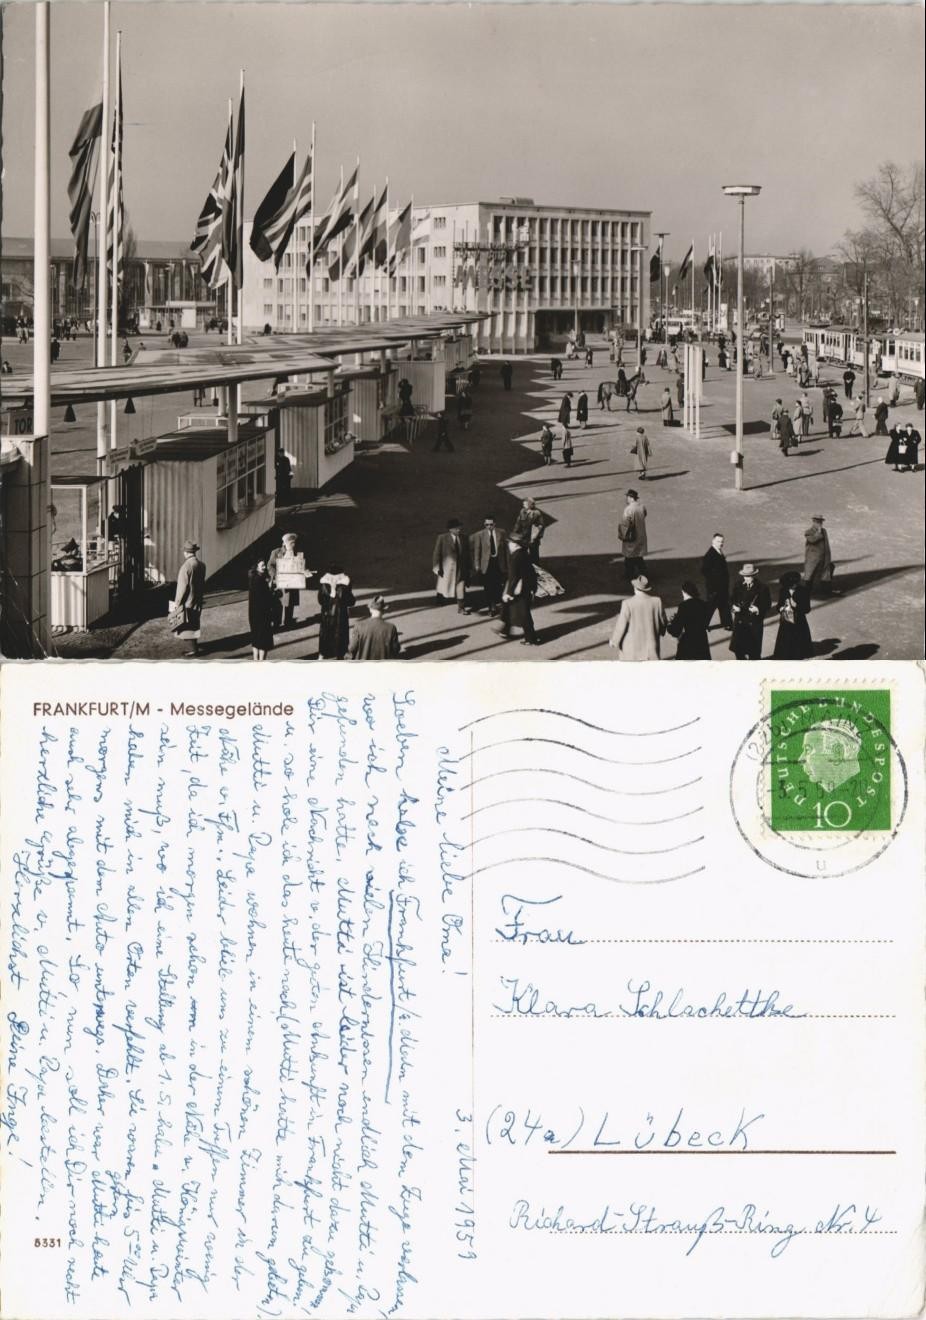 TOR
MESSE
FRANKFURT/M - Messegelände
Meine liebe Oma!
3. Mai 1959
Soeben habe ich Frankfurt/s. Main mit dem Zuge verlassen,
wo ich nach vielen Hindernissen endlich Mutti u. Papa
gefunden hatte. Mutti ist leider noch nicht dazu gekommen,
Dir eine Nachricht v. der guten Ankunft in Frankfurt zu geben
u. so hole ich das heute nach (Mutti hatte mich darum gebeten).
Mutti u. Papa wohnen in einem schönen Zimmer in der
Nähe v. Ffm. Leider blieb uns zu einem Treffen nur wenig
Zeit, da ich morgen schon in der Nähe v. Königswinter
sein muß, wo ich eine Stellung ab 1.5. habe. Mutti u. Papa
hatten mich in allen Orten verfehlt. Sie waren bis 5 00 Uhr
morgens mit dem Auto unterwegs. Daher war Mutti heute
auch sehr abgespannt. So nun soll ich Dir noch recht
herzliche Grüße v. Mutti u. Papa bestellen.
Herzlichst Deine Inge!
8331
DEUTSCHE BUNDESPOST
10
-3.5.59
u
Frau
Klara Schlachettke
(24a) Lübeck
Richard-Strauß-Ring Nr. 4